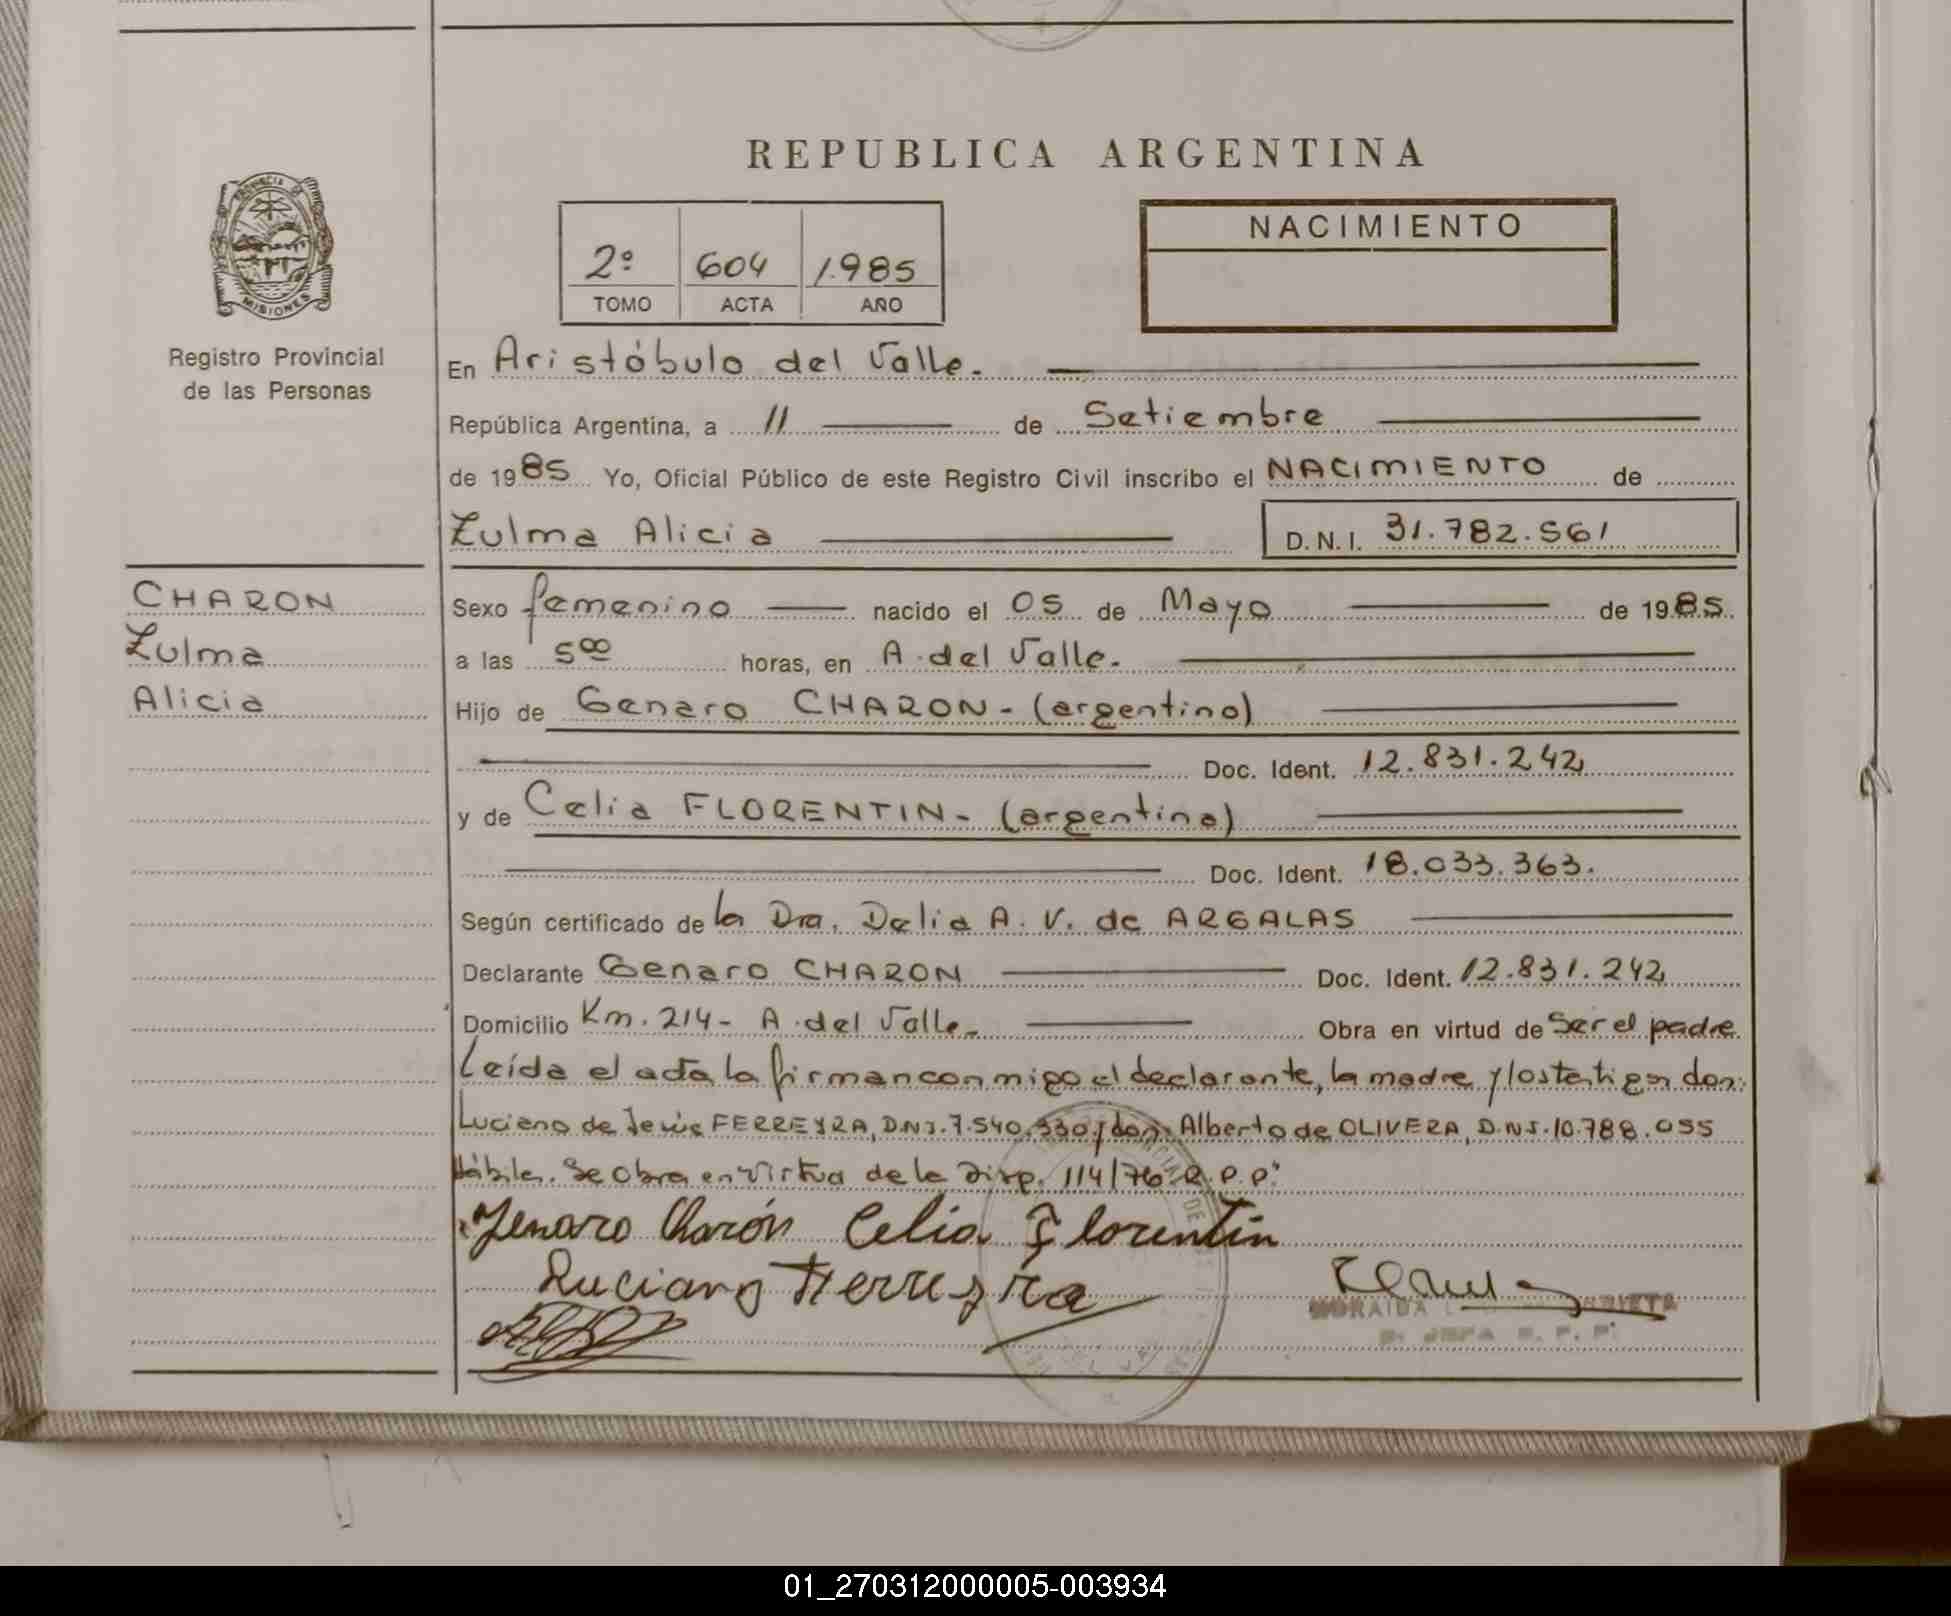 REPUBLICA ARGENTINA
PROVINCIA DE
MISIONES
Registro Provincial
de las Personas
2º 604 1.985
TOMO ACTA AÑO
NACIMIENTO
En Aristóbulo del Valle.
República Argentina, a 11 de Setiembre
de 1985 Yo, Oficial Público de este Registro Civil inscribo el NACIMIENTO de
Zulma Alicia D.N.I. 31.782.561
CHARON
Zulma
Alicia
Sexo femenino nacido el 05 de Mayo de 1985.
a las 5⁰⁰ horas, en A. del Valle.
Hijo de Genaro CHARON - (argentino)
Doc. Ident. 12.831.242
y de Celia FLORENTIN - (argentina)
Doc. Ident. 18.033.363.
Según certificado de la Dra. Delia A. V. de ARGALAS
Declarante Genaro CHARON Doc. Ident. 12.831.242
Domicilio Km. 214 - A. del Valle.- Obra en virtud de Ser el padre.
Leída el acta la firman conmigo el declarante, la madre y los testigos don:
Luciano de Jesús FERREYRA, D.N.I. 7.540.330 y don: Alberto de OLIVERA, D.N.I. 10.788.055
Hábiles. Se Obra en Virtud de la Disp. 114/76 R.P.P.
Jenaro Charón Celia Florentín
Luciano Ferreyra
MORAIDA
JEFA R. P. P.
01_270312000005-003934